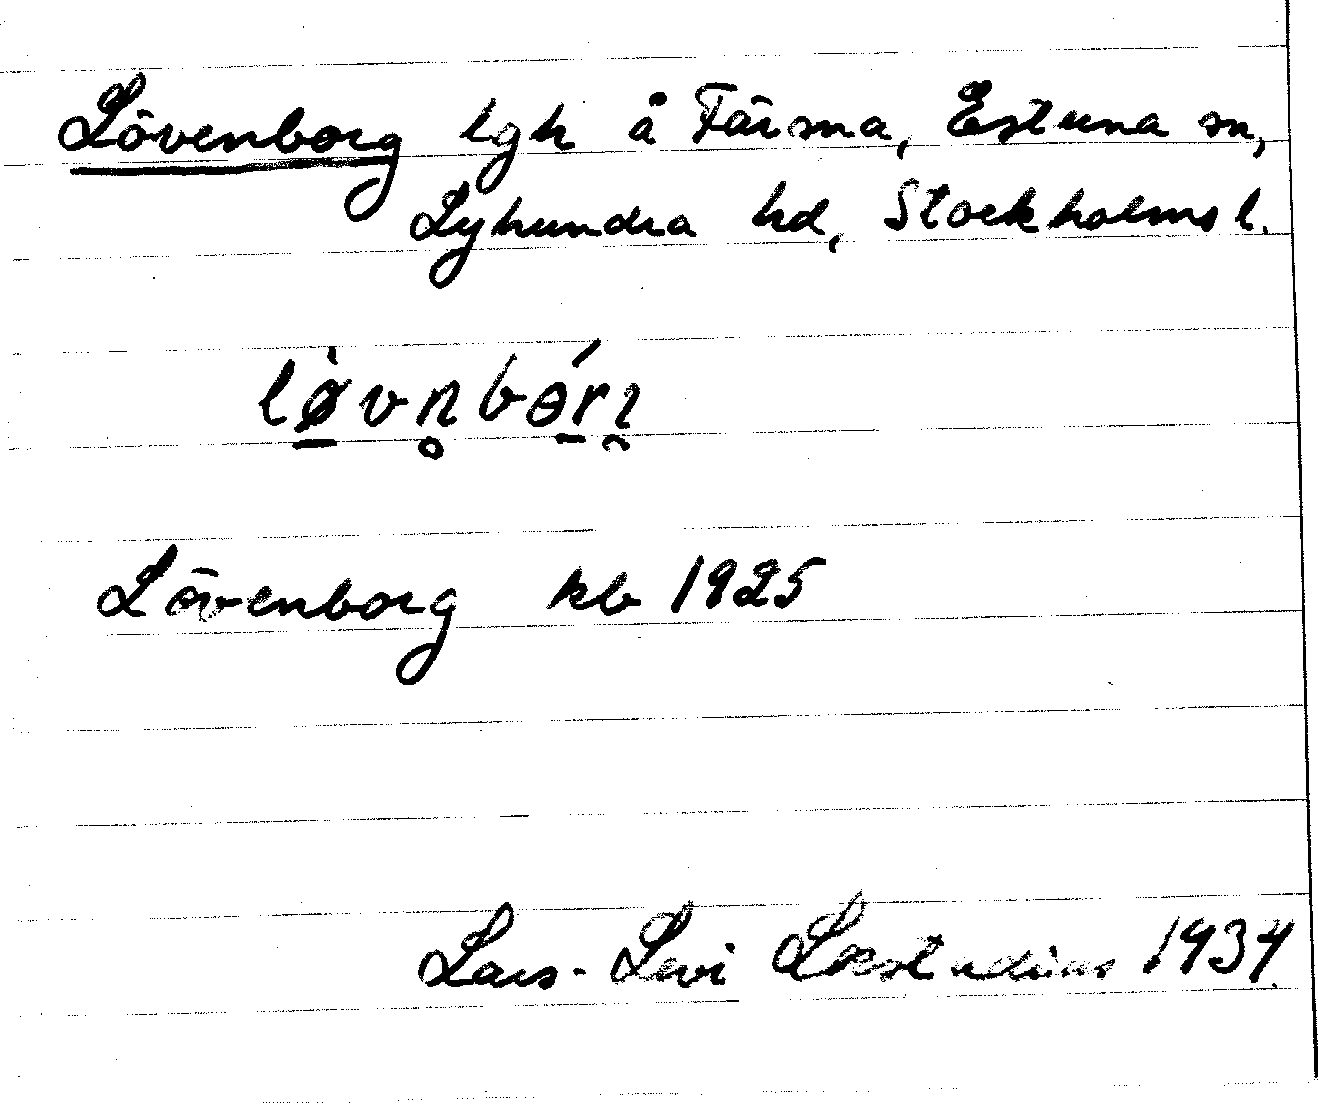 Lövenborg lgh å Färsna, Estuna sn,
Lyhundra hd, Stockholms l.
Lövenborg kb 1925
Lars-Levi Læstadius 1934.